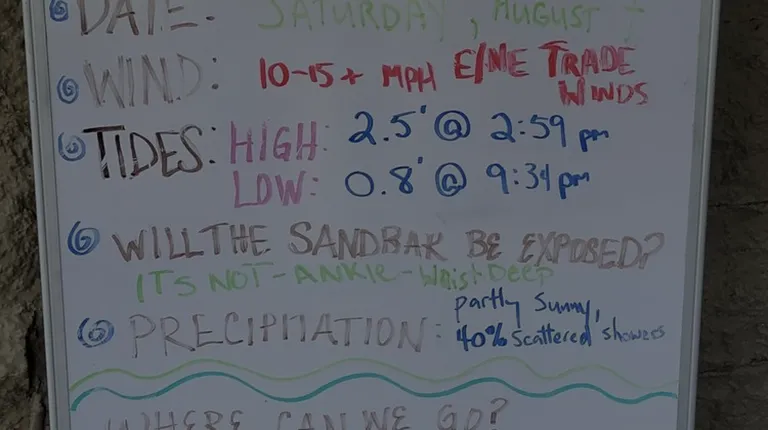 DATE: SATURDAY, AUGUST
WIND: 10-15+ MPH E/NE TRADE
WINDS
TIDES: HIGH: 2.5' @ 2:59 pm
LOW: 0.8' @ 9:34 pm
WILL THE SANDBAR BE EXPOSED?
ITS NOT-ANKLE-WAIST DEEP
PRECIPITATION: partly sunny,
40% scattered showers
WHERE CAN WE GO?